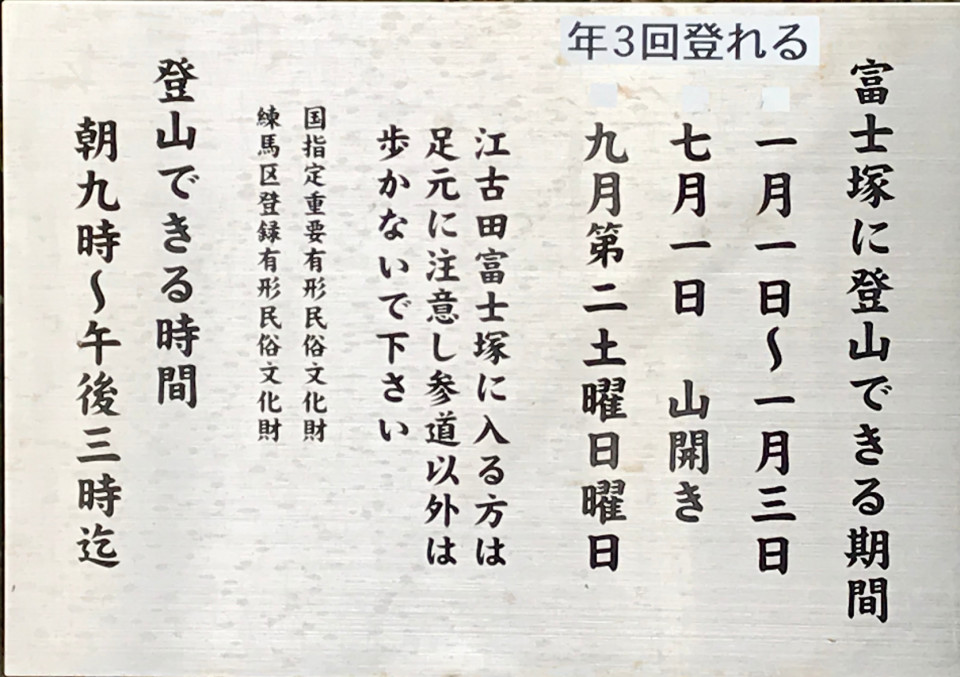 年3回登れる
富士塚に登山できる期間
一月一日～一月三日
七月一日　山開き
九月第二土曜日曜日
江古田富士塚に入る方は
足元に注意し参道以外は
歩かないで下さい
国指定重要有形民俗文化財
練馬区登録有形民俗文化財
登山できる時間
朝九時～午後三時迄